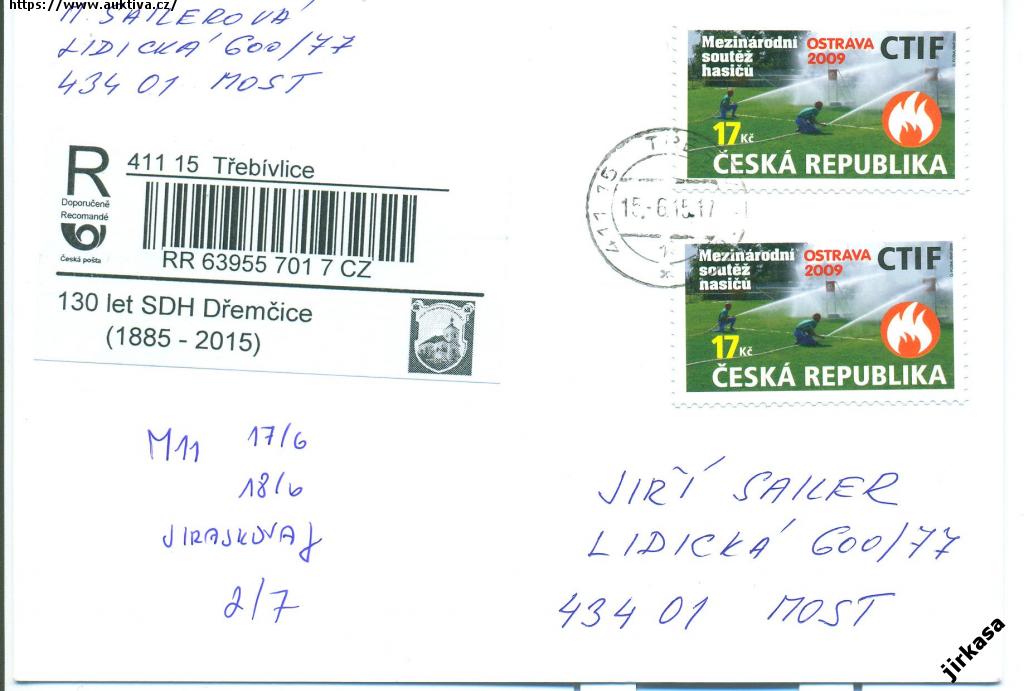 https://www.auktiva.cz/
M. SAILEROVÁ
LIDICKÁ 600/77
434 01 MOST
R
Doporučeně
Recomandé
Česká pošta
411 15 Třebívlice
RR 63955 701 7 CZ
130 let SDH Dřemčice
(1885 - 2015)
Mezinárodní
soutěž
hasičů
OSTRAVA
2009
CTIF
17 Kč
ČESKÁ REPUBLIKA
411 15
15.-6.15.17
Mezinárodní
soutěž
hasičů
OSTRAVA
2009
CTIF
17 Kč
ČESKÁ REPUBLIKA
M11 17/6
18/6
2/7
JIŘÍ SAILER
LIDICKÁ 600/77
434 01 MOST
jirkasa